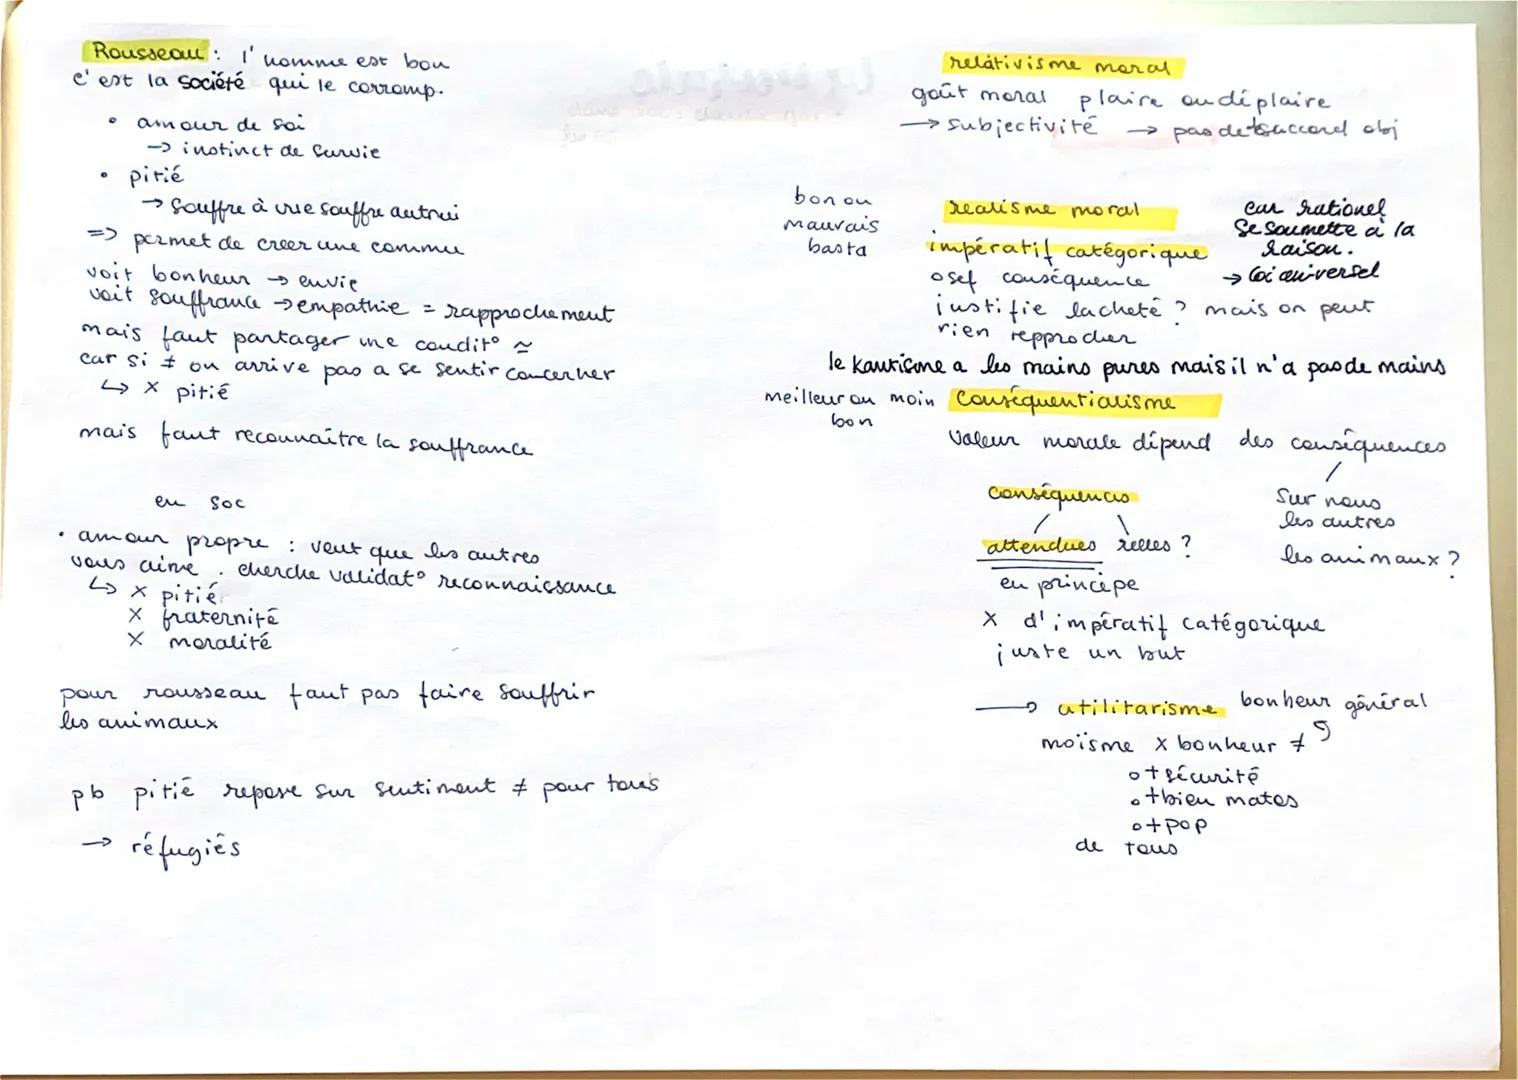 Rousseau : l'homme est bon
c'est la société qui le corromp.
• amour de soi
→ instinct de survie
• pitié
→ souffre à vue souffre autrui
=> permet de creer une commu
voit bonheur → envie
voit souffrance → empathie = rapprochement
mais faut partager une condit° ~
car si ≠ on arrive pas a se sentir concerner
↳ × pitié
mais faut reconnaître la souffrance
en soc
• amour propre : veut que les autres
vous aime. cherche validat° reconnaissance
↳ × pitié
× fraternité
× moralité
pour rousseau faut pas faire souffrir
les animaux
pb pitié repose sur sentiment ≠ pour tous
→ réfugiés
relativisme moral
goût moral plaire ou déplaire
→ subjectivité → pas de accord obj
bon ou
mauvais
basta
realisme moral
impératif catégorique
osef conséquence
justifie lacheté ? mais on peut
rien repprocher
car rationel
se soumette à la
raison.
→ loi universel
le kantisme a les mains pures mais il n'a pas de mains
meilleur ou moin
bon
Conséquentialisme
Valeur morale dépend des conséquences
/
Sur nous
les autres
les animaux ?
Conséquences
/ \
attendues réelles ?
en principe
× d'impératif catégorique
juste un but
→ utilitarisme bonheur général
moïsme × bonheur ≠
o + sécurité
o + bien mates
o + pop
de tous